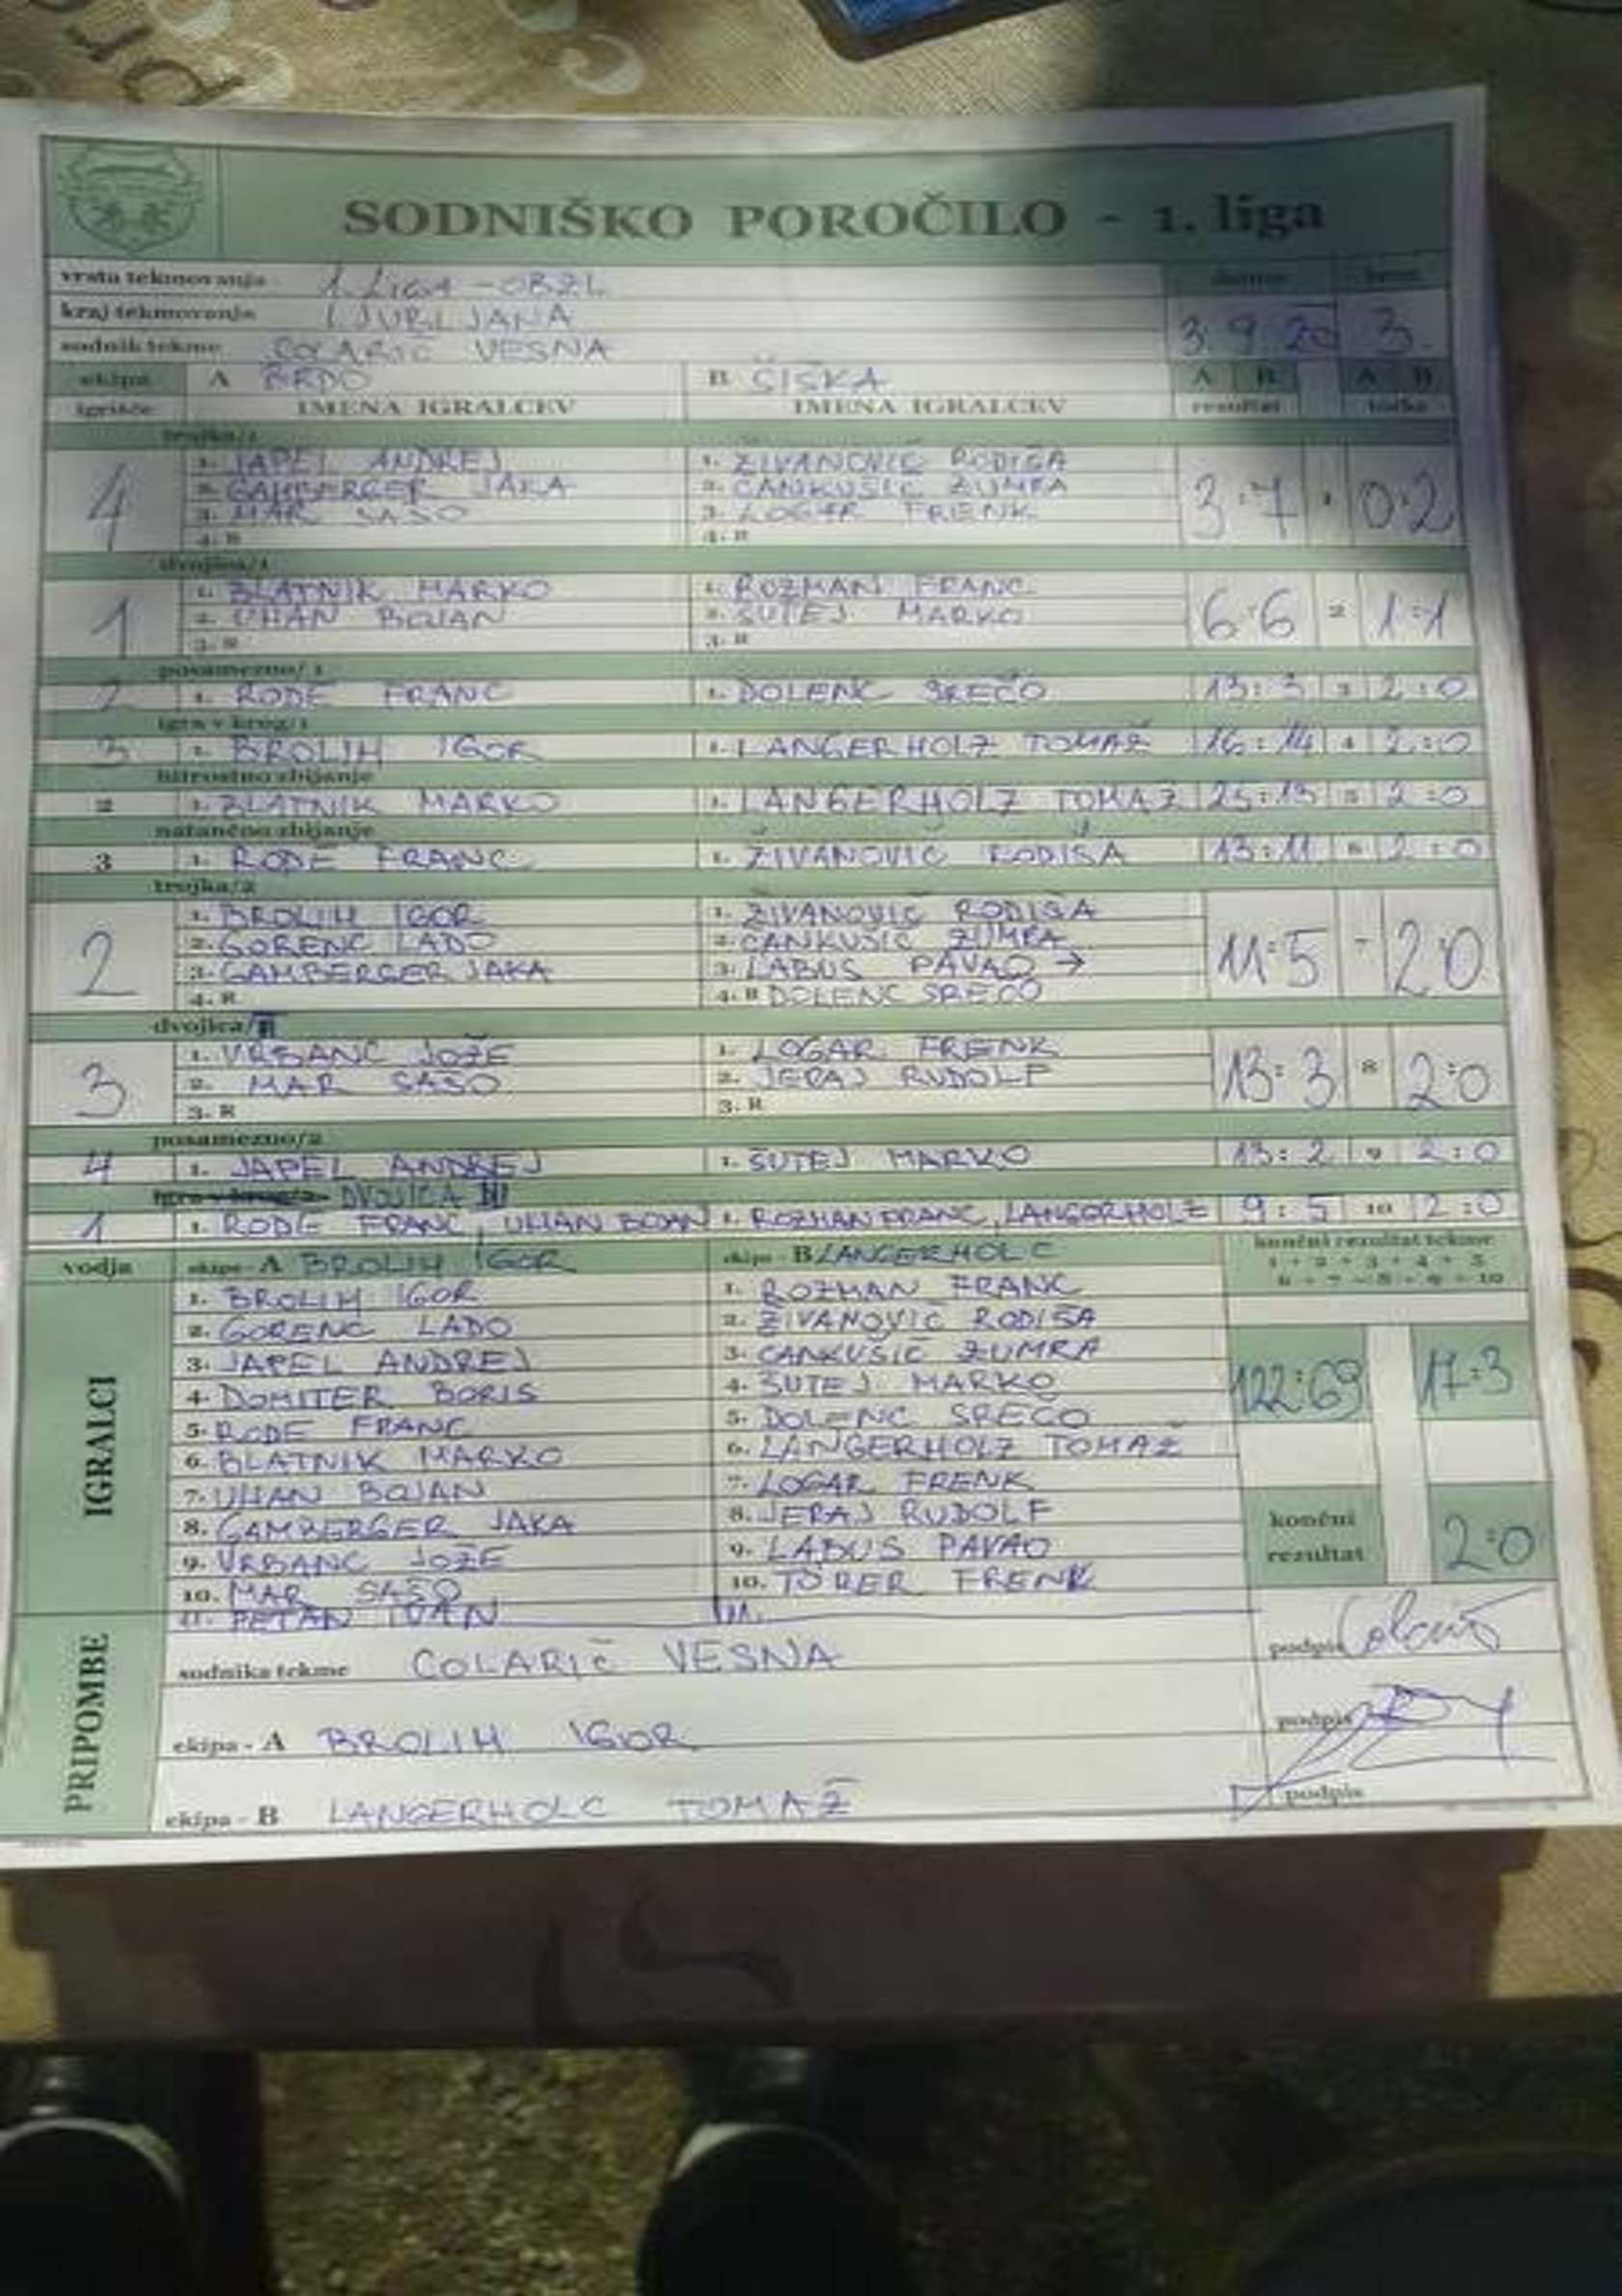 SODNIŠKO POROČILO - 1. liga
vrsta tekmovanja 1. LIGA - OBZL
kraj tekmovanja LJUBLJANA
sodnik tekme COLARIČ VESNA 3. 9. 20 3.
ekipa A BRDO B ŠIŠKA A B A B
igrišče IMENA IGRALCEV IMENA IGRALCEV rezultat točke
trojka/1
4
1. JAPEL ANDREJ 1. ŽIVANOVIČ RODIŠA
2. GAMBERGER JAKA 2. CANKUSIČ ZUMRA
3. MAR SAŠO 3. LOGAR FRENK
3:7 1 0:2
4. R 4. R
dvojica/1
1
1. BLATNIK MARKO 1. ROZMAN FRANC
2. UHAN BOJAN 2. ŠUTEJ MARKO
6:6 2 1:1
3. R 3. R
posamezno/1
2 1. RODE FRANC 1. DOLENC SREČO 13:3 3 2:0
igra v krog/1
3 1. BROLIH IGOR 1. LANGERHOLZ TOMAŽ 16:14 4 2:0
hitrostno zbijanje
2 1. BLATNIK MARKO 1. LANGERHOLZ TOMAŽ 25:13 5 2:0
natančno zbijanje
3 1. RODE FRANC 1. ŽIVANOVIČ RODIŠA 13:11 6 2:0
trojka/2
2
1. BROLIH IGOR 1. ŽIVANOVIČ RODIŠA
2. GORENC LADO 2. CANKUSIČ ZUMRA
3. GAMBERGER JAKA 3. LABUS PAVAO →
11:5 7 2:0
4. R 4. R DOLENC SREČO
dvojica/II
3
1. VRBANC JOŽE 1. LOGAR FRENK
2. MAR SAŠO 2. JERAJ RUDOLF
13:3 8 2:0
3. R 3. R
posamezno/2
4 1. JAPEL ANDREJ 1. ŠUTEJ MARKO 13:2 9 2:0
igra v krog/2 DVOJICA III
1 1. RODE FRANC, UHAN BOJAN 1. ROZMAN FRANC, LANGERHOLZ 9:5 10 2:0
vodja ekipe - A BROLIH IGOR ekipe - B LANGERHOLC
končni rezultat tekme
1 + 2 + 3 + 4 + 5
6 + 7 + 8 + 9 + 10
IGRALCI
1. BROLIH IGOR 1. ROZMAN FRANC
2. GORENC LADO 2. ŽIVANOVIČ RODIŠA
3. JAPEL ANDREJ 3. CANKUSIČ ZUMRA
122:69 17:3
4. DOMITER BORIS 4. ŠUTEJ MARKO
5. RODE FRANC 5. DOLENC SREČO
6. BLATNIK MARKO 6. LANGERHOLZ TOMAŽ
7. UHAN BOJAN 7. LOGAR FRENK
8. GAMBERGER JAKA 8. JERAJ RUDOLF
9. VRBANC JOŽE 9. LABUS PAVAO
končni rezultat 2:0
10. MAR SAŠO 10. TORER FRENK
11. PETAN IVAN 11.
PRIPOMBE
sodnika tekme COLARIČ VESNA podpis Colarič
ekipa - A BROLIH IGOR podpis
ekipa - B LANGERHOLC TOMAŽ podpis